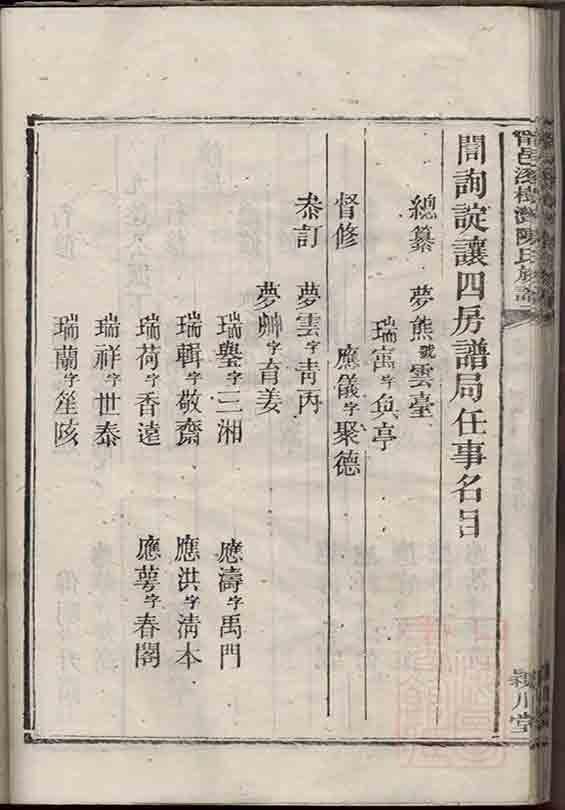 誾詢諚讓四房譜局任事名目
總纂 夢熊號雲臺
瑞寓字負亭
督修 應儀字聚德
叅訂 夢雲字靑丙
夢艸字育姜
瑞璺字三湘 應濤字禹門
瑞輯字敬齋 應洪字淸本
瑞荷字香遠 應蕚字春閣
瑞祥字世泰
瑞蘭字笙陔
陳氏族譜
潁川堂